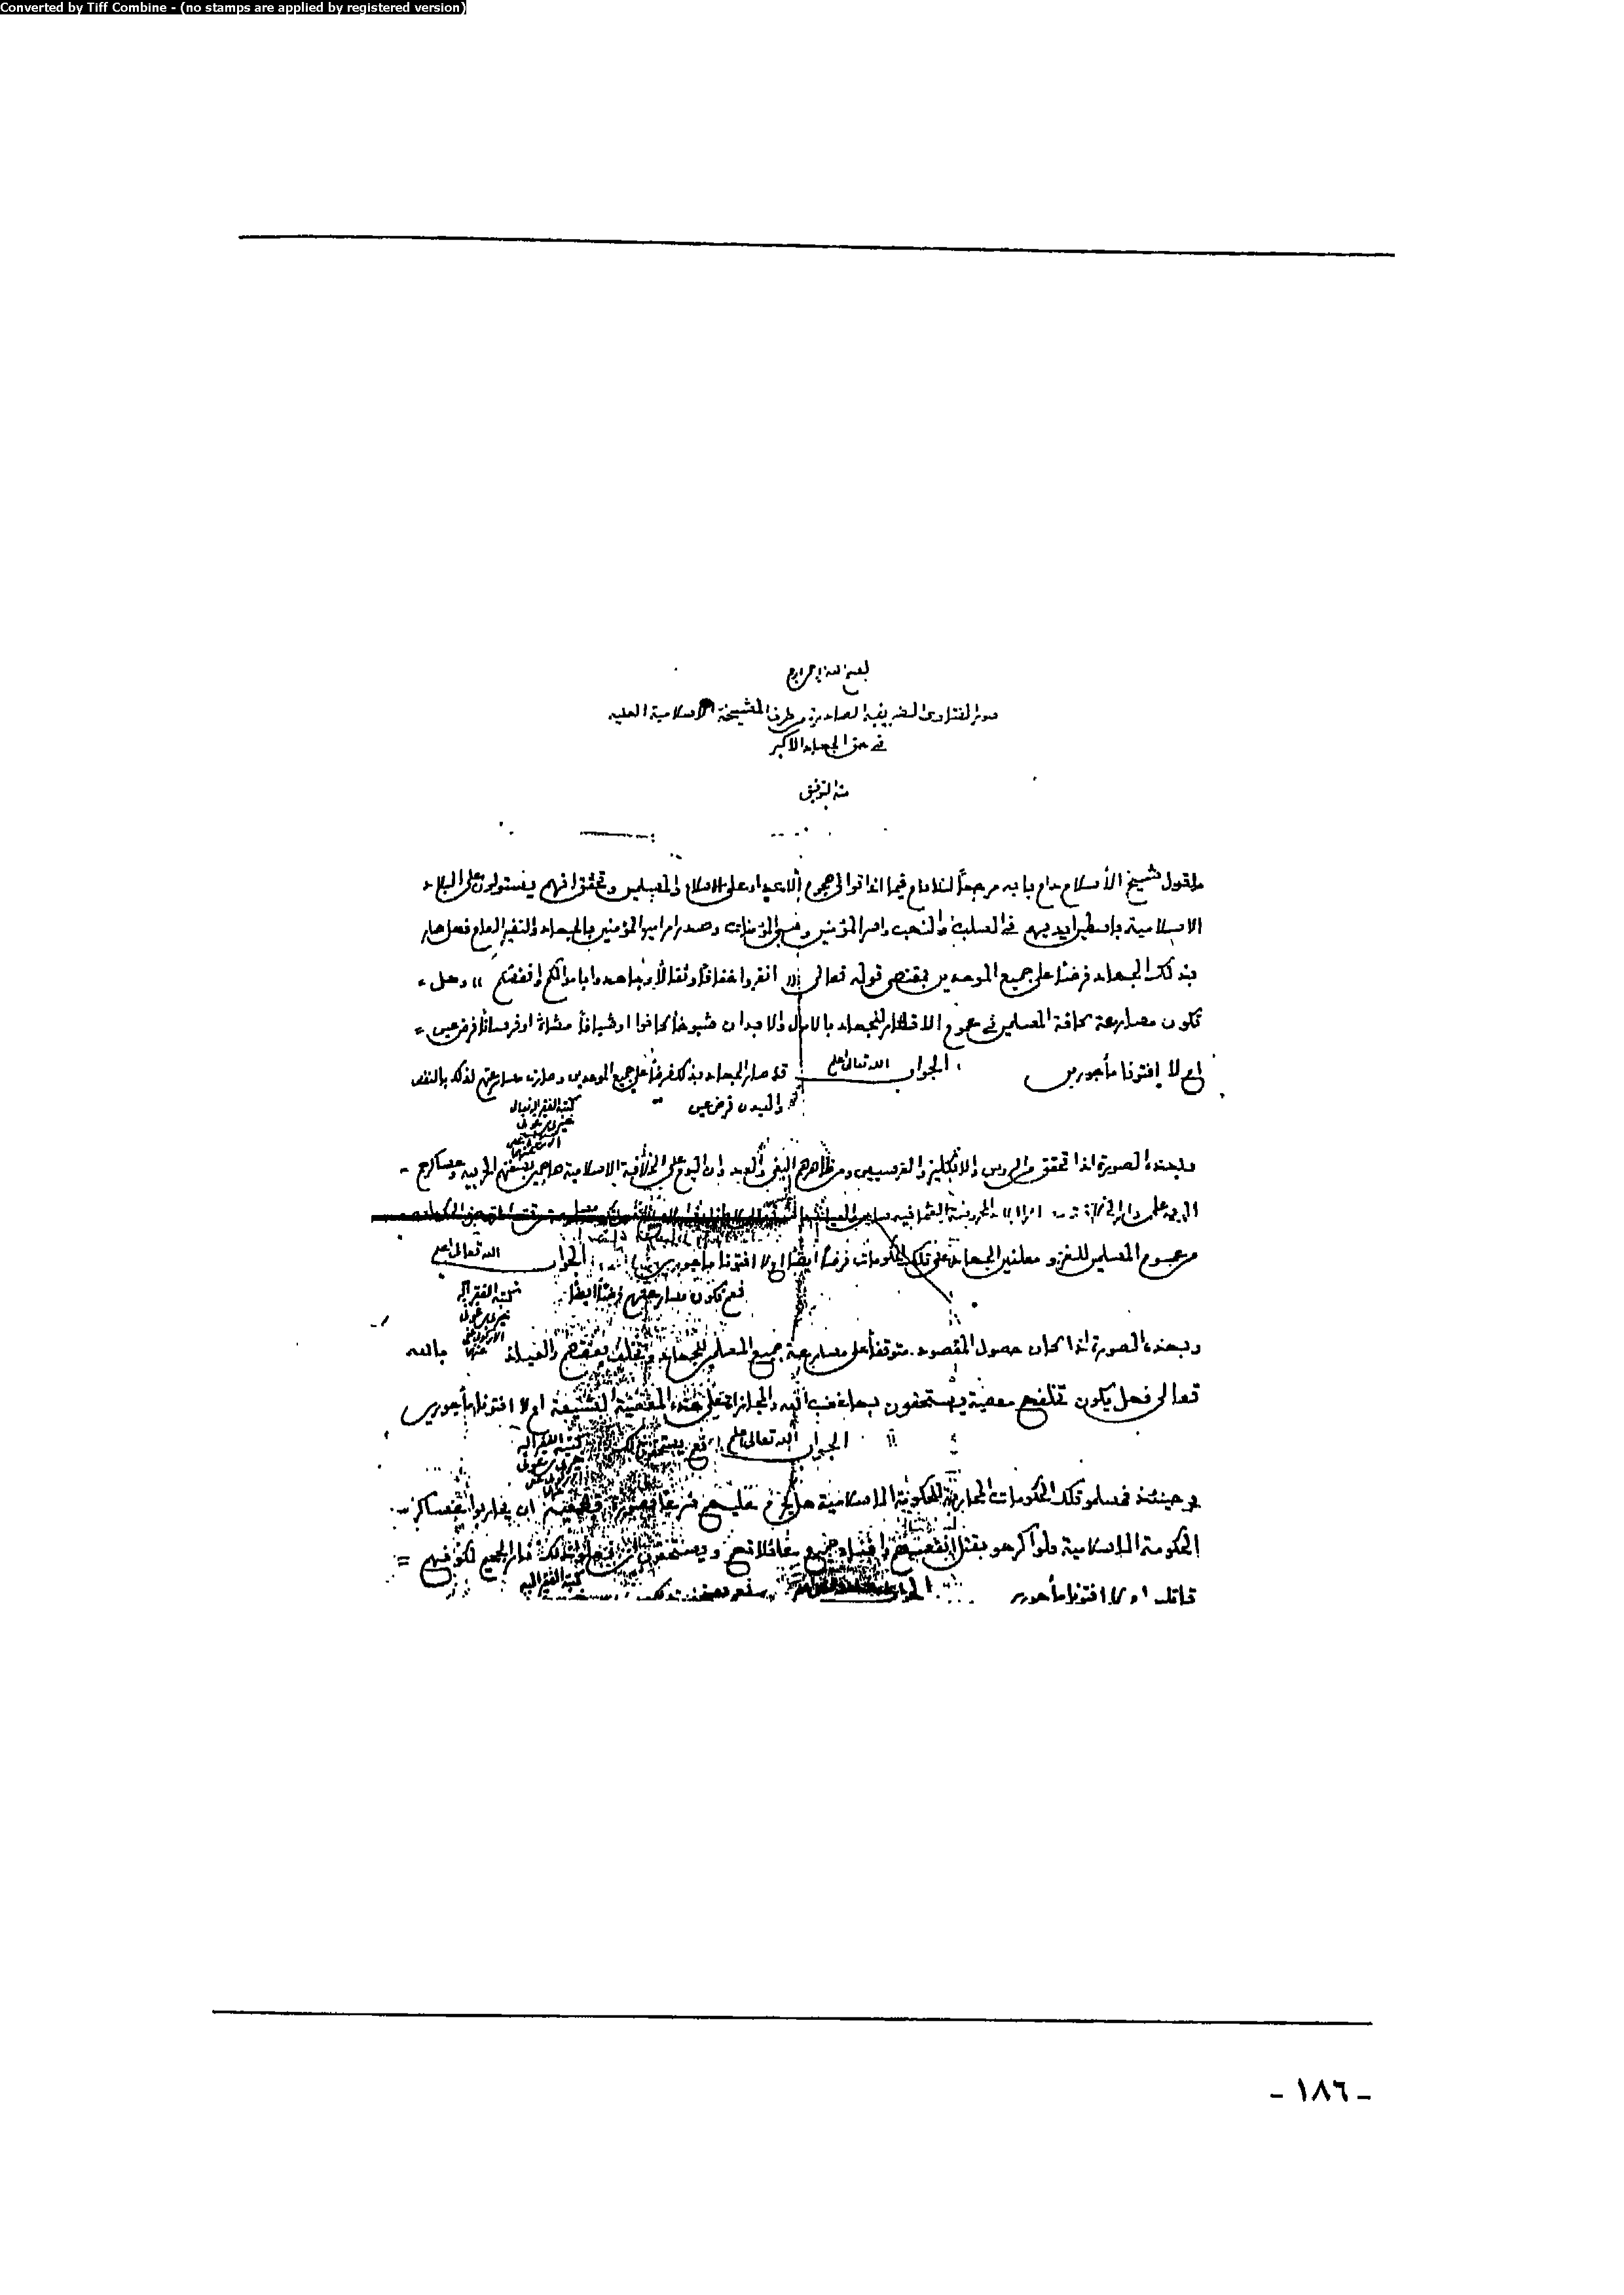 Converted by Tiff Combine - (no stamps are applied by registered version)
بسم الله الرحمن الرحيم
صورة الفتاوى الشريفة الصادرة من طرف المشيخة الاسلامية العليه
في حق الجهاد الاكبر
منه التوفيق
ما قول شيخ الأسلام دام بابه مرجعاً للانام فيما اذا توالى هجوم الاعداء على الاسلام والمسلمين وتحقق انهم يستولون على البلاد
الاسلامية باسطين ايديهم في السلب والنهب واسر المؤمنين وسبي المؤمنات وصدر امر امير المؤمنين بالجهاد والنفير العام فهل صار
بذلك الجهاد فرضاً على جميع الموحدين بمقتضى قوله تعالى (( انفروا خفافاً وثقالاً وجاهدوا باموالكم وانفسكم )) وهل =
تكون مسارعة كافة المسلمين في عموم الاقطار للجهاد بالاموال والابدان شيوخاً كانوا او شباناً مشاة او فرساناً فرض عين =
ام لا افتونا مأجورين الجواب الله تعالى اعلم قد صار الجهاد بذلك فرضاً على جميع الموحدين وصارت مسارعتهم لذلك بالنفس
والبدن فرض عين
كتبه الفقير اليه تعالى
خيري بن عوني
الاركوبي عفي
عنهما
وبهذه الصورة اذا تحقق من الروس والانكليز والفرنسيس ومن ظاهرهم البغي والعدوان اليوم على الخلافة الاسلامية هاجمين بسفنهم الحربيه وعساكرهم =
البريه على دار الخلافة
من عموم المسلمين للغزو معلنين الجهاد على تلك الحكومات فرضاً ايضاً ام لا افتونا مأجورين الجواب الله تعالى اعلم
نعم تكون مسارعتهم فرضاً ايضاً
كتبه الفقير اليه
خيري بن عوني
الاركوبي عفي
عنهما
وبهذه الصورة اذا كان حصول المقصود متوقفاً على مسارعة جميع المسلمين للجهاد وتخلف بعضهم والعياذ بالله
تعالى فهل يكون تخلفهم معصية ويستحقون بها غضب الله والمجازاة على هذه المعصية الشنيعة ام لا افتونا مأجورين
الجواب الله تعالى اعلم نعم يستحقون ذلك
كتبه الفقير اليه
خيري بن عوني
وحينئذ فمسلمو تلك الحكومات المحاربة للحكومة الاسلامية هل يحرم عليهم شرعاً ان يحاربوا عساكر
الحكومة الاسلامية ولو اكرهوا بقتل انفسهم وافناء جميع عائلاتهم ويستحقون ان فعلوا ذلك نار الجحيم لكونهم =
ام لا افتونا مأجورين
كتبه الفقير اليه
- ١٨٦ -